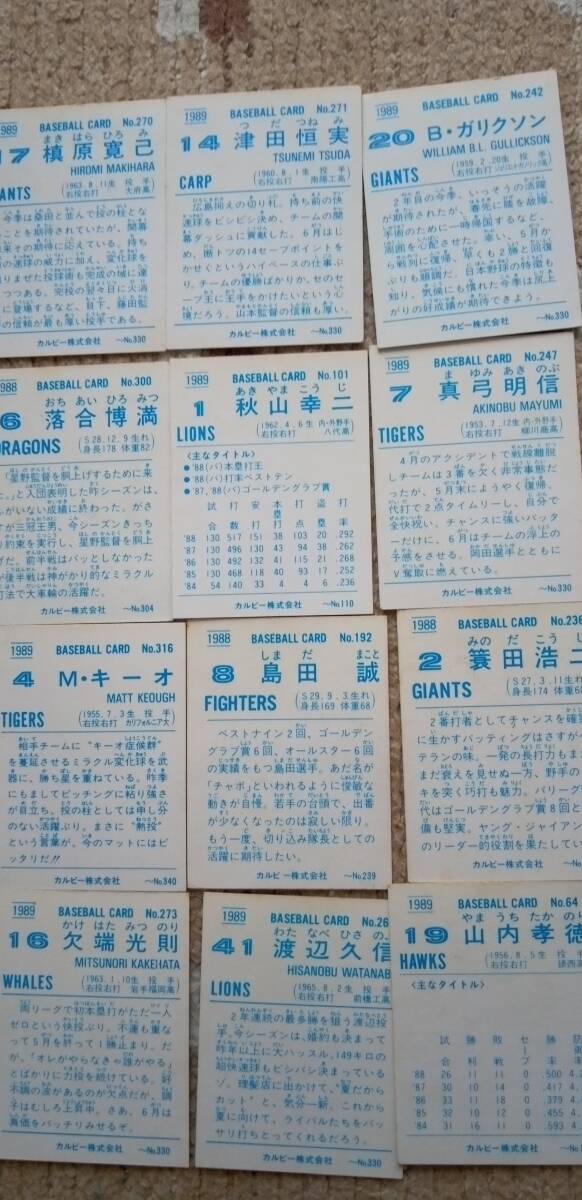 1989 BASEBALL CARD No.270
まき はら ひろ み
17 槙原寛己
HIROMI MAKIHARA
ANTS
(1963.8.11生 投 手
右投右打 大府高)
今季は桑田と並んで投の柱とな
ることを期待されていたが、開幕
来その期待に応えている。持ち
の速球の威力に加え、変化球を
りまぜた投球術も完成の域に達
つつある。
に登場するなど、目下、藤田監
の信頼が最も厚い投手である。
カルビー株式会社 〜No.330
1989 BASEBALL CARD No.271
つ だ つね み
14 津田恒実
TSUNEMI TSUDA
CARP
(1960.8.1生 投 手
右投右打 南陽工高)
広島抑えの切り札。持ち前の快
速球をビシビシ決め、チームの開
幕ダッシュに貢献した。6月はじ
め、断トツの14セーブポイントを
かせぐというハイペースの仕事ぶ
り。チームの優勝ばかりか、セのセ
ーブ王に王手をかけたいという心
境だろう。山本監督の信頼も厚い。
カルビー株式会社 〜No.330
1989 BASEBALL CARD No.242
20 B・ガリクソン
WILLIAM B.L. GULLICKSON
GIANTS
(1959.2.20生 投 手
右投右打 ジョリエットカソリック高)
2年目の今季、いっそうの活躍
が期待されたが、春先に膝を故障、
手術のために一時帰国するなど、
周囲を心配させた。幸い、5月か
ら戦列に復帰、早くも2勝と回復
ぶりも順調だ。日本野球の特徴も
知り、気候にも慣れた今季は尻上
がりの好成績が期待できよう。
カルビー株式会社 〜No.330
1988 BASEBALL CARD No.300
おち あい ひろ みつ
6 落合博満
DRAGONS
(S28.12.9生れ
身長178 体重82)
「星野監督を胴上げするために来
た。」と入団表明した昨シーズンは、
しがいない成績に終わった。がさ
が三冠王男、今シーズンきっち
り約束を実行し、星野監督を胴上
げだ。前半戦はパッとしなかった
が後半戦は神がかり的なミラクル
打法で大車輪の活躍だ。
カルビー株式会社 〜No.304
1989 BASEBALL CARD No.101
あき やま こう じ
1 秋山幸二
LIONS
(1962.4.6生 内・外野手
右投右打 八代高)
〈主なタイトル〉
●'88(パ)本塁打王
●'88(パ)打率ベストテン
●'87、'88(パ)ゴールデングラブ賞
試合 打数 安打 本塁打 打点 盗塁 打率
'88 130 517 151 38 103 20 .292
'87 130 496 130 43 94 38 .262
'86 130 492 132 41 115 21 .268
'85 130 468 118 40 93 17 .252
'84 54 140 33 4 14 6 .236
カルビー株式会社 〜No.110
1989 BASEBALL CARD No.247
ま ゆみ あき のぶ
7 真弓明信
AKINOBU MAYUMI
TIGERS
(1953.7.12生 内・外野手
右投右打 柳川商高)
4月のアクシデントで戦線離脱
しチームは3番を欠く非常事態だ
ったが、5月末にようやく復帰、
代打で2点タイムリーし、自分で
全快祝い。チャンスに強いバッタ
ーだけに、6月はチームの浮上の
予感をさせる。岡田選手とともに
V奪取に燃えている。
カルビー株式会社 〜No.330
1989 BASEBALL CARD No.316
4 M・キーオ
MATT KEOUGH
TIGERS
(1955.7.3生 投 手
右投右打 カリフォルニア大)
相手チームに“キーオ症候群”
を蔓延させるミラクル変化球を武
器に、勝ち星を重ねている。昨季
にもましてピッチングに粘り強さ
が目立ち、投の柱としては申し分
のない活躍ぶり。まさに“熱投”
という言葉が、今のマットにはピ
ッタリだ!!
カルビー株式会社 〜No.340
1988 BASEBALL CARD No.192
しま だ まこと
8 島田 誠
FIGHTERS
(S29.9.3生れ
身長169 体重68)
ベストナイン2回、ゴールデン
グラブ賞6回、オールスター6回
の実績をもつ島田選手。あだ名が
「チャボ」といわれるように俊敏な
動きが自慢。若手の台頭で、出番
が少なくなったのは寂しい限り。
もう一度、切り込み隊長としての
活躍に期待したい。
カルビー株式会社 〜No.239
1988 BASEBALL CARD No.236
みの だ こう じ
2 簑田浩二
GIANTS
(S27.3.11生れ
身長174 体重)
2番打者としてチャンスを確実
に生かすバッティングはさすが
テランの味。一発の長打力も
まだ衰えを見せぬ一方、野手の
キを突く巧打も魅力。パリーグ
代はゴールデングラブ賞8回と
備も堅実。ヤング・ジャイアン
のリーダー的役割を果たしてい
カルビー株式会社
1989 BASEBALL CARD No.273
かけ はた みつ のり
16 欠端光則
MITSUNORI KAKEHATA
WHALES
(1963.1.10生 投 手
右投右打 岩手福岡高)
両リーグで初本塁打がただ一人
ゼロという快投ぶり。不運も重な
って5月を終って1勝止まり。だ
が、「オレがやらなきゃ誰がやる」
とばかりに力投を続けている。好
不調の波があるのが欠点だが、調
子はむしろ上昇中。さあ、6月は
真価をバッチリみせるぞ。
カルビー株式会社 〜No.330
1989 BASEBALL CARD No.26
わた なべ ひさ の
41 渡辺久信
HISANOBU WATANAB
LIONS
(1965.8.2生 投 手
右投右打 前橋工高)
2年連続の最多勝を狙う渡辺投
手。今シーズンは、婚約も決まって
昨年以上に大ハッスル。149キロの
超快速球もビシバシ決まっている
ゾ。理髪店に出かけて、“夏だから
カット”と、気分一新。これから
夏に向けて、ライバルたちをバッ
サリ打ちとってくれるだろう。
カルビー株式会社 〜No.330
1989 BASEBALL CARD No.64
やま うち たか のり
19 山内孝徳
HAWKS
(1956.8.5生 投 手
右投右打 鎮西高)
〈主なタイトル〉
試合 勝利 敗戦 セーブ 勝率
'88 26 13 13 0 .500 4.
'87 30 10 14 0 .417 4.
'86 33 11 18 0 .379 4.4
'85 32 10 12 0 .455
'84 31 16 11 0 .593
カルビー株式会社